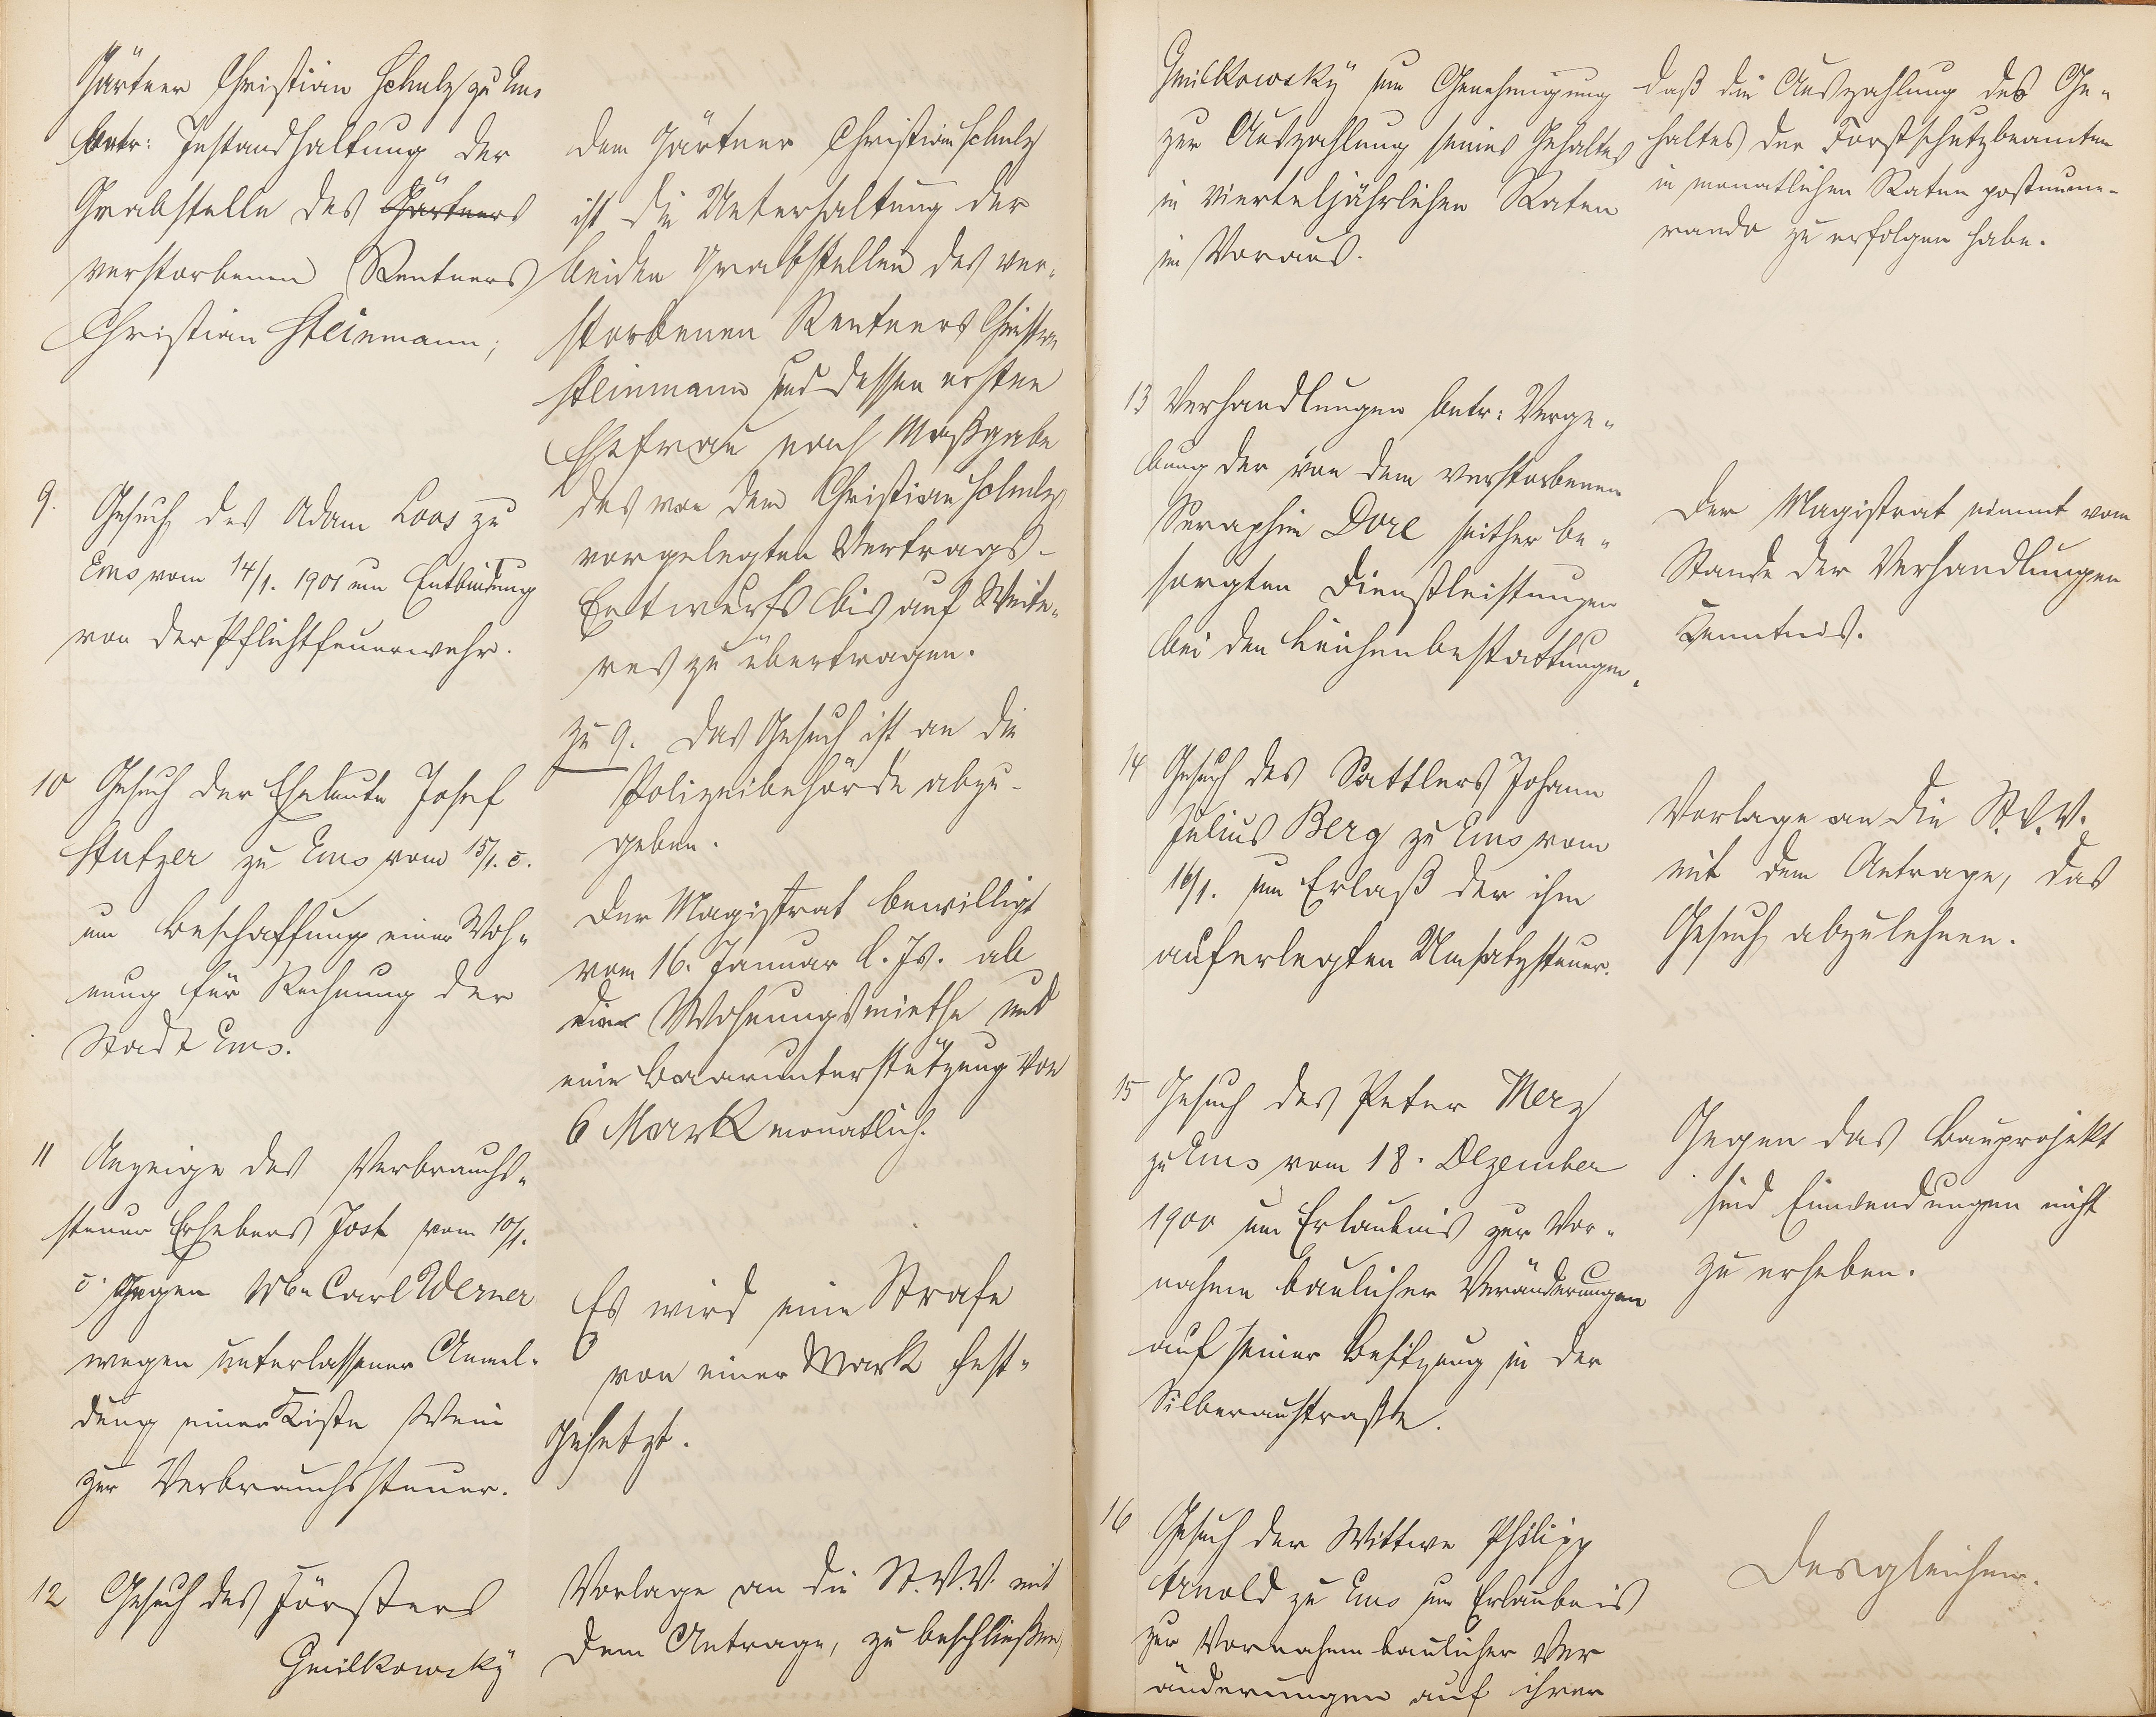 Gärtner Christian Schulz zu Ems
betr: Instandhaltung der
Grabstelle des Gärtners
verstorbenen Rentners
Christian Steinmann;
dem Gärtner Christian Schulz
ist die Unterhaltung der
beiden Grabstellen des ver-
storbenen Rentners Christian
Steinmann und dessen ersten
Ehefrau nach Maßgabe
des von dem Christian Schulz
vorgelegten Vertrags-
Entwurfs bis auf Weite-
res zu übertragen.
9. Gesuch des Adam Loos zu
Ems vom 14/1. 1901 um Entbindung
von der Pflichtfeuerwehr.
zu 9. Das Gesuch ist an die
Polizeibehörde abzu-
geben.
10 Gesuch der Eheleute Josef
Stutzer zu Ems vom 15/1. c.
um Beschaffung einer Woh-
nung für Rechnung der
Stadt Ems.
Der Magistrat bewilligt
vom 16. Januar l. Js. ab
eine Wohnungsmiethe und
eine Baarunterstützung von
6 Mark monatlich.
11 Anzeige des Verbrauchs-
steuer Erhebers Jost vom 10/1.
c. gegen Wwe Carl Werner
wegen unterlassener Anmel-
dung einer Kiste Wein
zur Verbrauchssteuer.
Es wird eine Strafe
von einer Mark fest-
gesetzt.
12 Gesuch des Försters
Gmilkowsky
Vorlage an die St.V.V. mit
dem Antrage, zu beschließen,
Gmilkowsky um Genehmigung
zur Auszahlung seines Gehaltes
in vierteljährlichen Raten
im Voraus.
daß die Auszahlung des Ge-
haltes der Forstschutzbeamten
in monatlichen Raten postnume-
rando zu erfolgen habe.
13 Verhandlungen betr: Verge-
bung der von dem verstorbenen
Seraphin Dore seither be-
sorgten Dienstleistungen
bei den Leichenbestattungen.
Der Magistrat nimmt vom
Stande der Verhandlungen
Kenntnis.
14 Gesuch des Sattlers Johann
Julius Berg zu Ems vom
16/1. um Erlaß der ihm
auferlegten Umsatzsteuer.
Vorlage an die St.V.V.
mit dem Antrage, das
Gesuch abzulehnen.
15 Gesuch des Peter Merz
zu Ems vom 18. Dezember
1900 um Erlaubnis zur Vor-
nahme baulicher Veränderungen
auf seiner Besitzung in der
Silberaustraße.
Gegen das Bauprojekt
sind Einwendungen nicht
zu erheben.
16 Gesuch der Wittwe Philipp
Arnold zu Ems um Erlaubnis
zur Vornahme baulicher Ver
änderungen auf ihrer
Desgleichen.